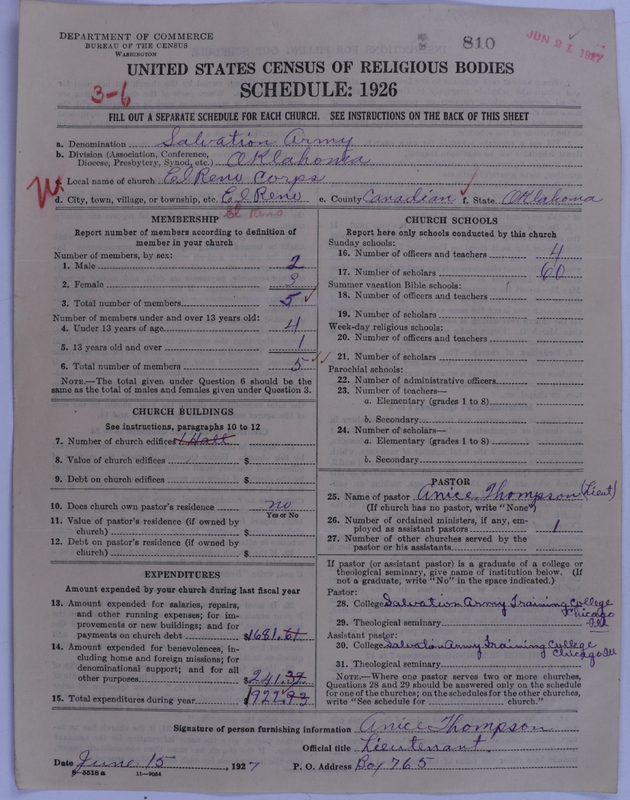 DEPARTMENT OF COMMERCE
BUREAU OF THE CENSUS
WASHINGTON
810
JUN 21 1927
UNITED STATES CENSUS OF RELIGIOUS BODIES
SCHEDULE: 1926
3-6
FILL OUT A SEPARATE SCHEDULE FOR EACH CHURCH. SEE INSTRUCTIONS ON THE BACK OF THIS SHEET
a. Denomination Salvation Army
b. Division (Association, Conference, Diocese, Presbytery, Synod, etc.) Oklahoma
c. Local name of church El Reno Corps
d. City, town, village, or township, etc. El Reno e. County Canadian f. State Oklahoma
El Reno
MEMBERSHIP
Report number of members according to definition of
member in your church
Number of members, by sex:
1. Male 2
2. Female 3
3. Total number of members 5
Number of members under and over 13 years old:
4. Under 13 years of age 4
5. 13 years old and over 1
6. Total number of members 5
NOTE.—The total given under Question 6 should be the
same as the total of males and females given under Question 3.
CHURCH BUILDINGS
See instructions, paragraphs 10 to 12
7. Number of church edifices 1 Hall
8. Value of church edifices $
9. Debt on church edifices $
10. Does church own pastor's residence no
Yes or No
11. Value of pastor's residence (if owned by
church) $
12. Debt on pastor's residence (if owned by
church) $
EXPENDITURES
Amount expended by your church during last fiscal year
13. Amount expended for salaries, repairs,
and other running expenses; for im-
provements or new buildings; and for
payments on church debt $1681.61
14. Amount expended for benevolences, in-
cluding home and foreign missions; for
denominational support; and for all
other purposes $241.32
15. Total expenditures during year $1922.93
CHURCH SCHOOLS
Report here only schools conducted by this church
Sunday schools:
16. Number of officers and teachers 4
17. Number of scholars 60
Summer vacation Bible schools:
18. Number of officers and teachers
19. Number of scholars
Week-day religious schools:
20. Number of officers and teachers
21. Number of scholars
Parochial schools:
22. Number of administrative officers
23. Number of teachers—
a. Elementary (grades 1 to 8)
b. Secondary
24. Number of scholars—
a. Elementary (grades 1 to 8)
b. Secondary
PASTOR
25. Name of pastor Anice Thompson (Lieut)
(If church has no pastor, write "None")
26. Number of ordained ministers, if any, em-
ployed as assistant pastors 1
27. Number of other churches served by the
pastor or his assistants
If pastor (or assistant pastor) is a graduate of a college or
theological seminary, give name of institution below. (If
not a graduate, write "No" in the space indicated.)
Pastor:
28. College Salvation Army Training College
Chicago
29. Theological seminary Ill
Assistant pastor:
30. College Salvation Army Training College
Chicago Ill
31. Theological seminary
NOTE.—Where one pastor serves two or more churches,
Questions 28 and 29 should be answered only on the schedule
for one of the churches; on the schedules for the other churches,
write "See schedule for church."
Signature of person furnishing information Anice Thompson
Official title Lieutenant.
Date June 15, 1927 P. O. Address Box 765
8-5518a 11-9064